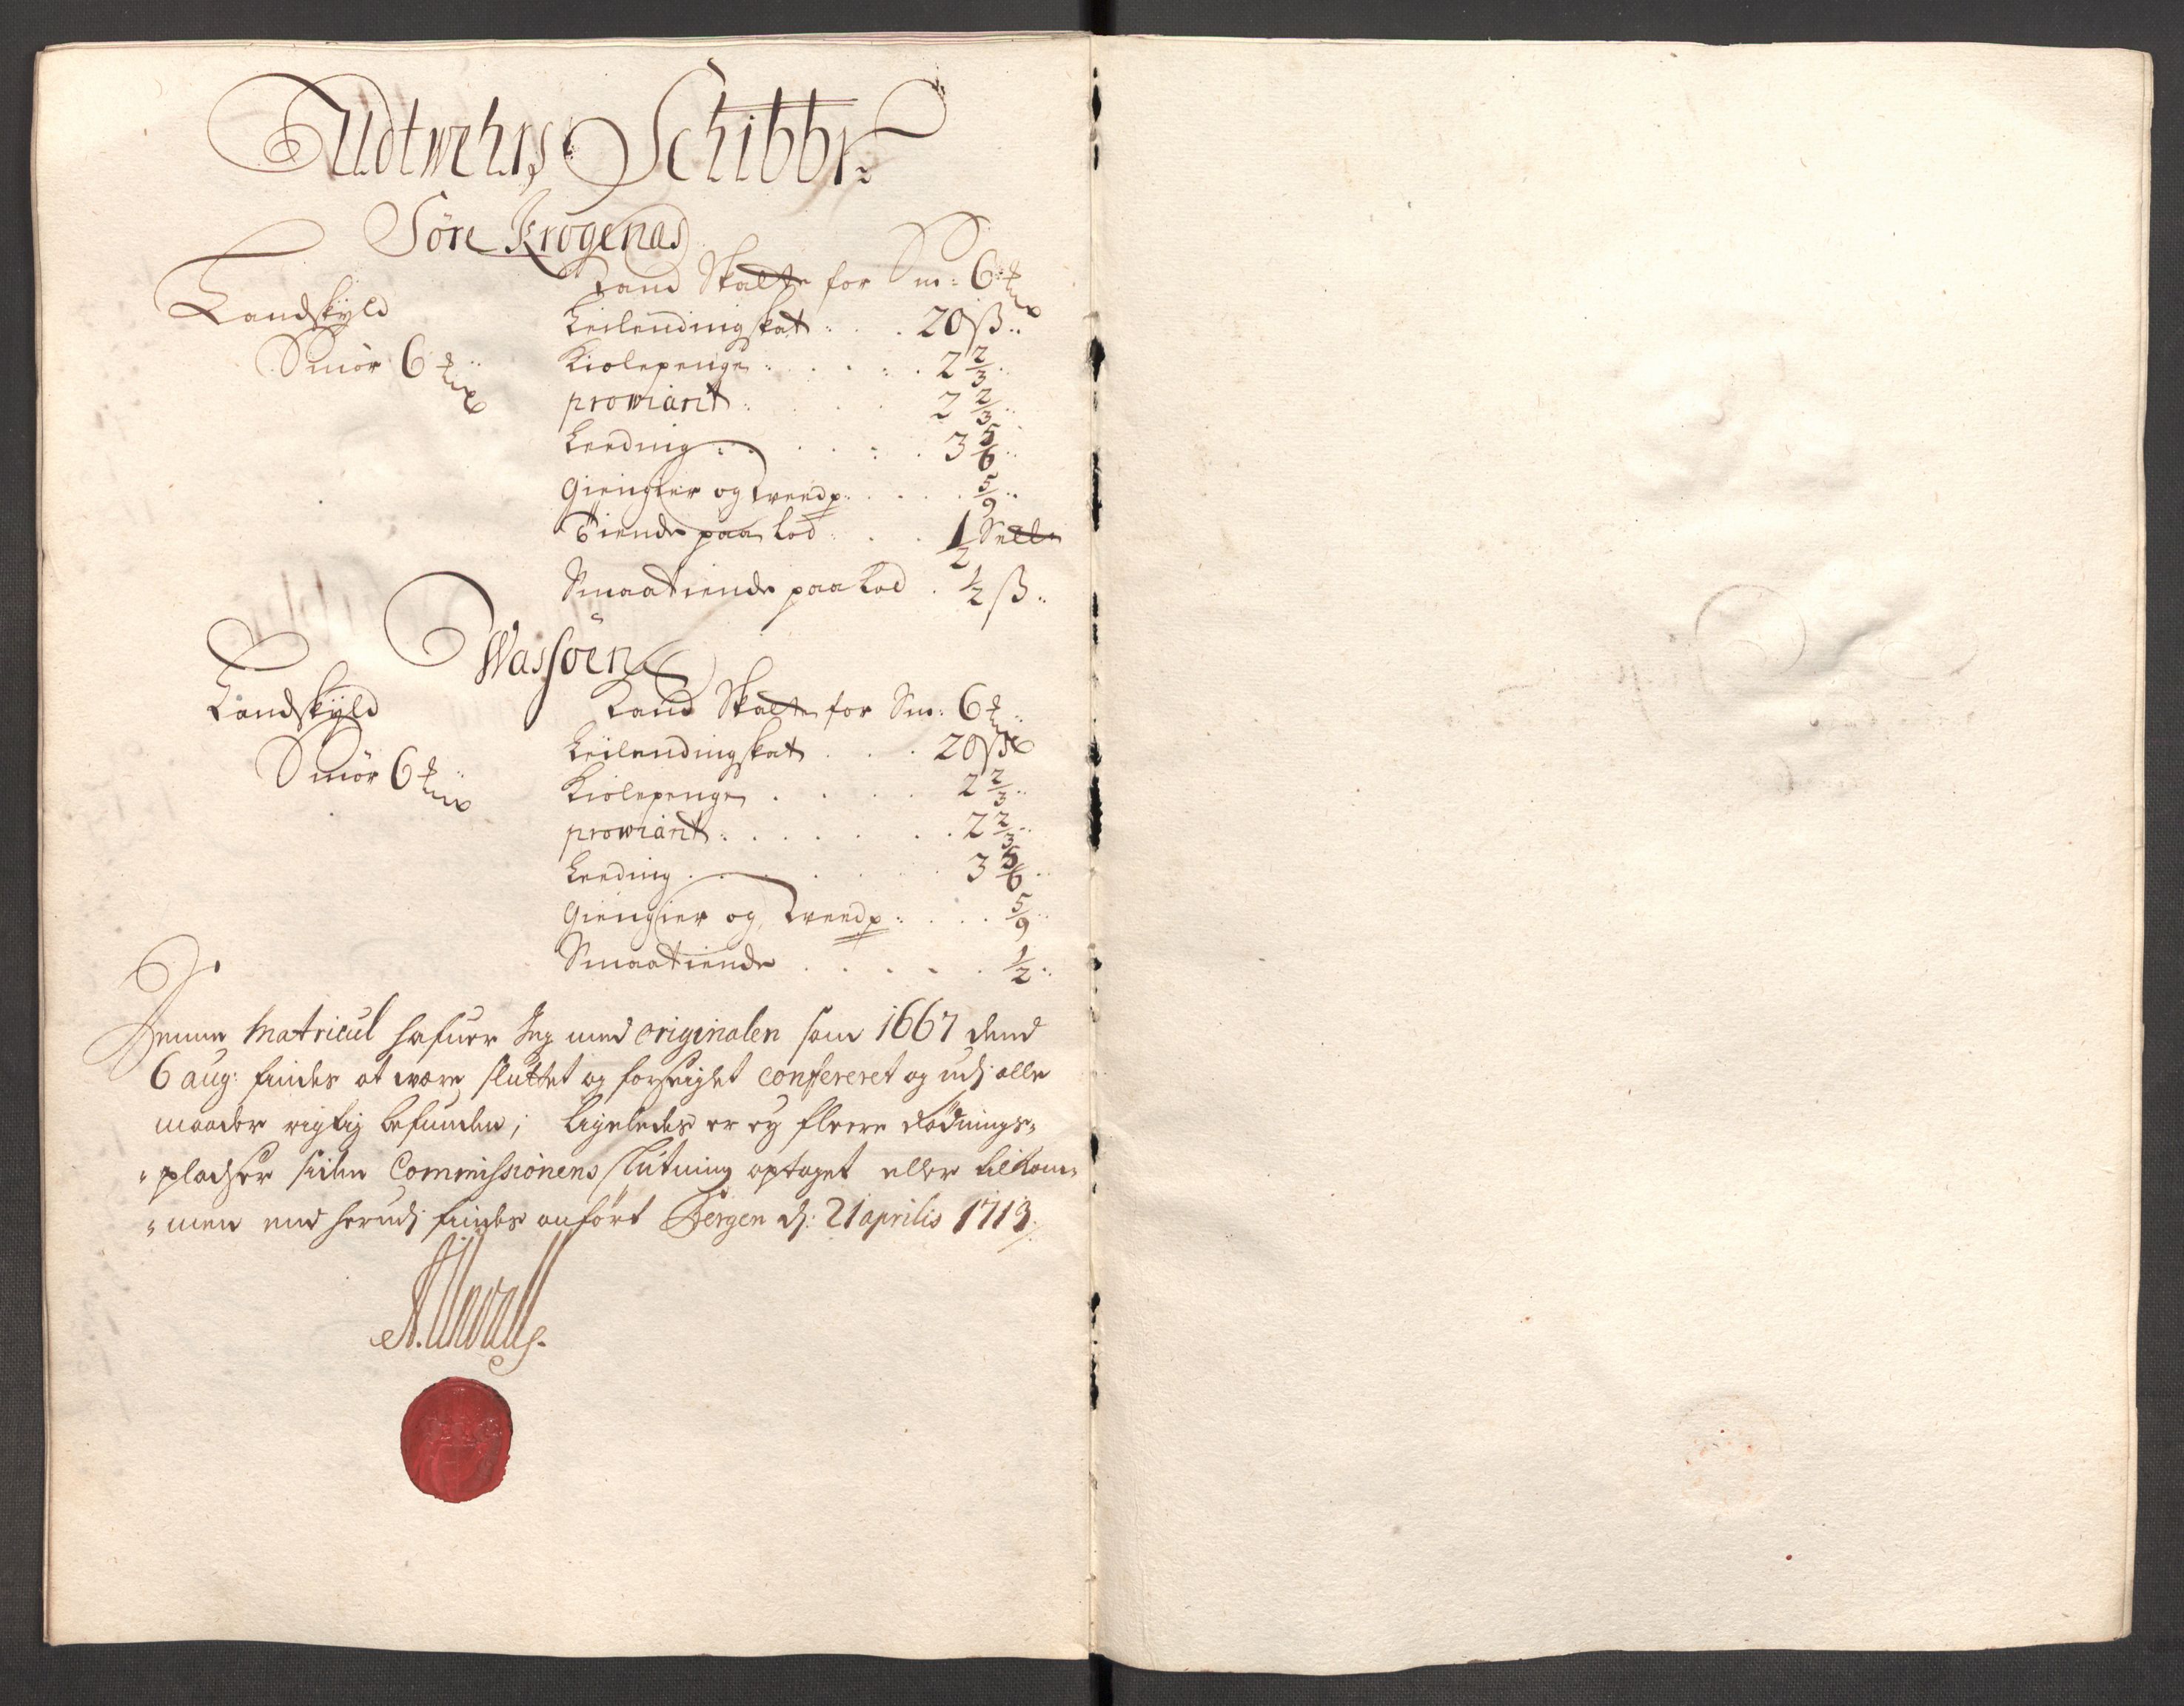 Udtwehrs Schibbr:
Søre Krogenas
Landskyld
Smør 6
Land Skalte for Sm: 6
Leilendingskat: . . 20 ß..
Kiolepenge: . . . . 2 2/3..
proviant: . . . 2 2/3..
Leeding: . . . . 3 5/6..
Giengier og tveedp: . . . . 5/9..
Tiende paa Lod: . . 1/2
Smaatiende paa Lod . 1/2 ß..
Wassøen
Landskyld
Smør 6
Land Skalte for Sm: 6
Leilendingskat . . . 20 ß
Kiolepenge . . . . 2 2/3..
prowiant: . . . . . . 2 2/3..
Leeding . . . . . 3 5/6..
Giengier og tveedp: . . . . 5/9..
Smaatiende . . . . . 1/2..
Denne Matricul hafuer Jeg med originalen som 1667 dend
6 aug: findes at være sluttet og forseiglet confereret og udj alle
maader rigtig befunden; ligeledes er ey fleere Rødnings=
=pladser siden Commissionens slutning optaget eller tilkom=
=men end herudj findes anført Bergen d: 21 aprilis 1713.